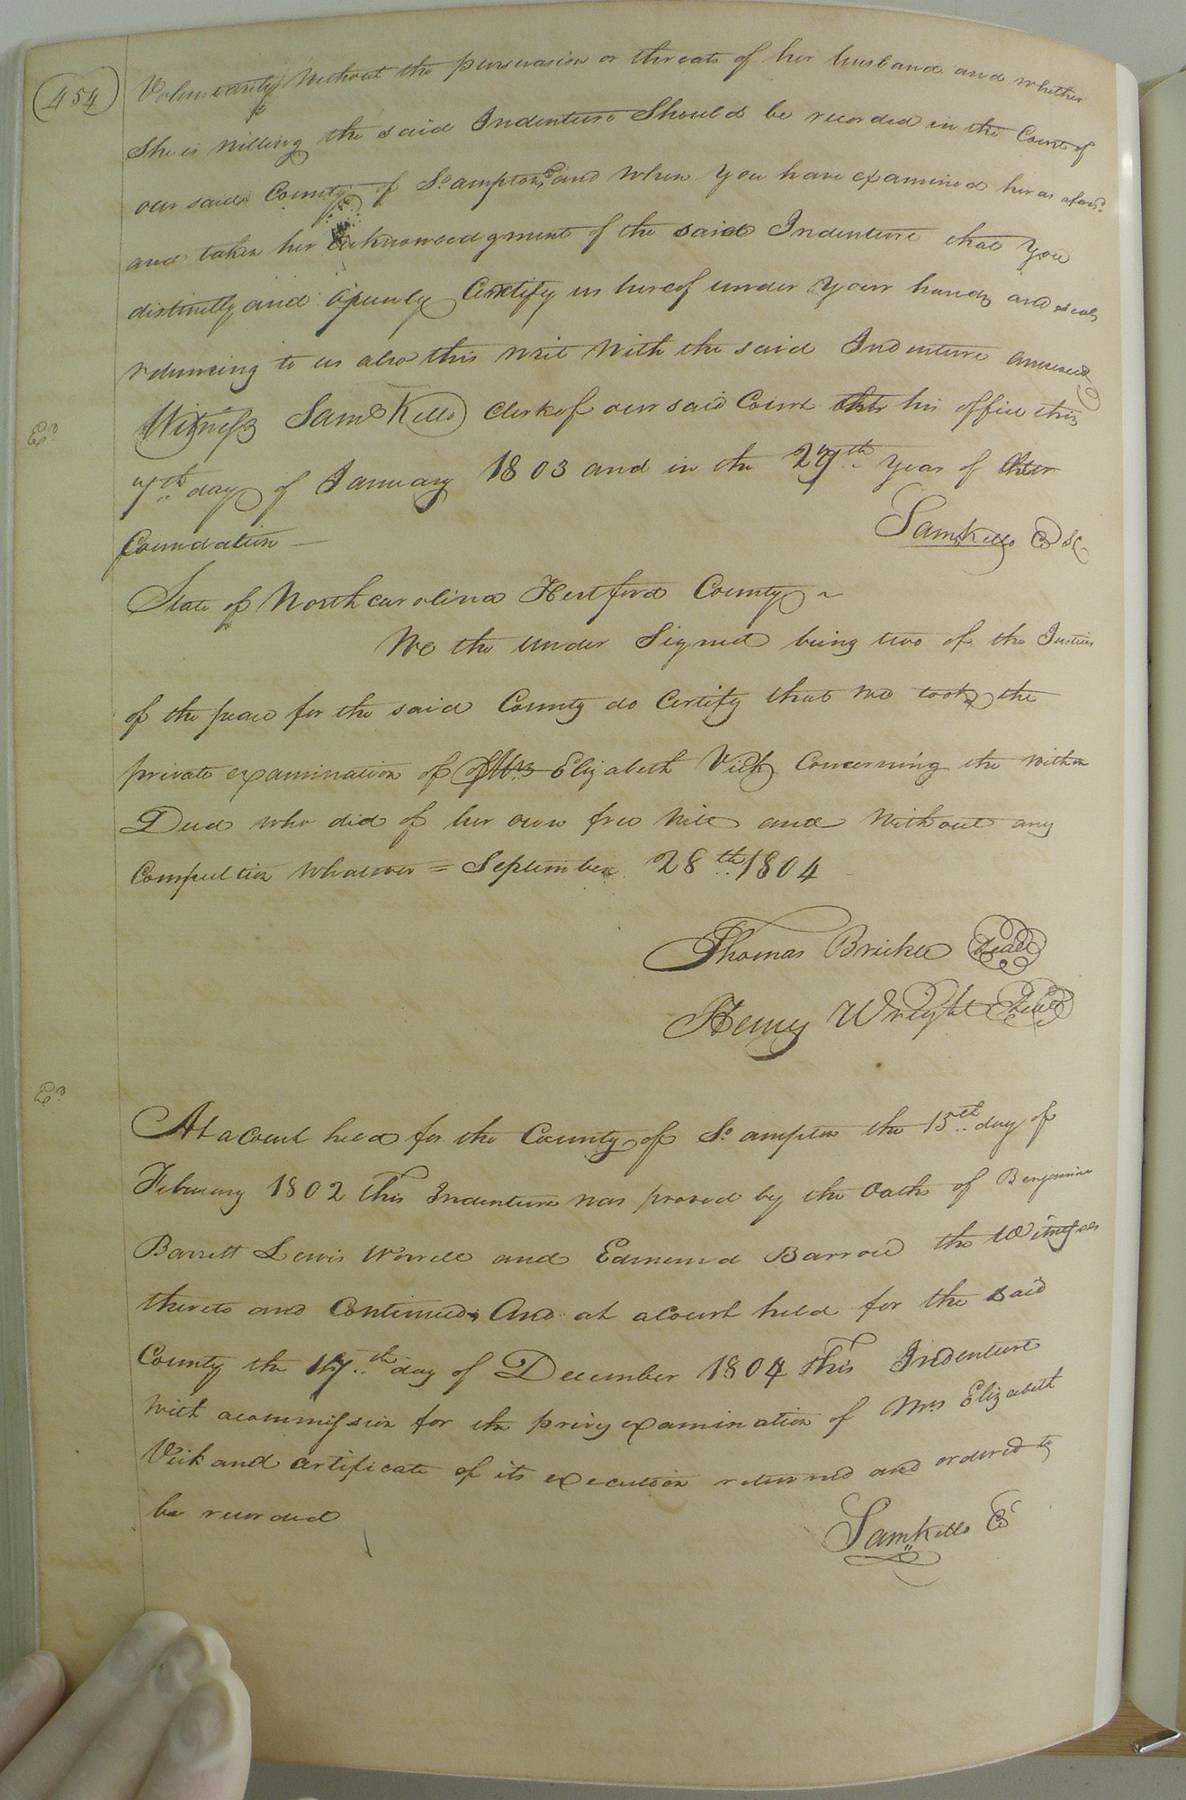 454
Voluntarily without the persuasion or threats of her husband and whether
She is willing the said Indenture Should be recorded in the Court of
our said County of So.ampton, and when you have examined her as afores.d
and taken her acknowledgment of the said Indenture that you
distinctly and openly Certify us hereof under your hands and seals
returning to us also this writ with the said Indenture annexed
Witness Sam.l Kello Clerk of our said Court at his office this
Ex.d
7th day of January 1803 and in the 27th year of our
foundation
Sam Kello C S C
State of North carolina Hertford County
We the under Signed being two of the Justices
of the peace for the said County do Certify that we took the
private examination of Mrs Elizabeth Vick Concerning the within
Deed who did of her own free will and without any
Compultion whatever = September 28th 1804
Thomas Brickell Seal
Henry Wright Seal
Ex.d
At a Court held for the County of So.ampton the 15th day of
February 1802 this Indenture was proved by the oaths of Benjamin
Barrett Lewis Worrell and Edmund Barrow the Witnesses
thereto and Continued, And at a Court held for the said
County the 17th day of December 1804 this Indenture
with a commission for the privy examination of Mrs Elizabeth
Vick and certificate of its execution returned and ordered to
be recorded
Sam Kello C